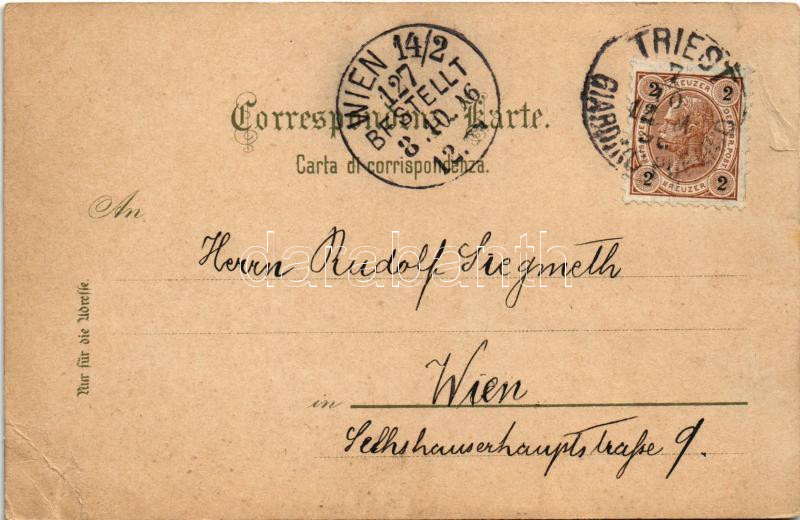 WIEN 14/2
127
BESTELLT
8.10.96
2.
TRIEST
GIARDINO
2 KREUZER 2
2 KREUZER 2
Correspondenz-Karte.
Carta di corrispondenza.
An
Herrn Rudolf Siegmeth
darabanth
in Wien
Sechshauserhauptstraße 9.
Nur für die Adresse.